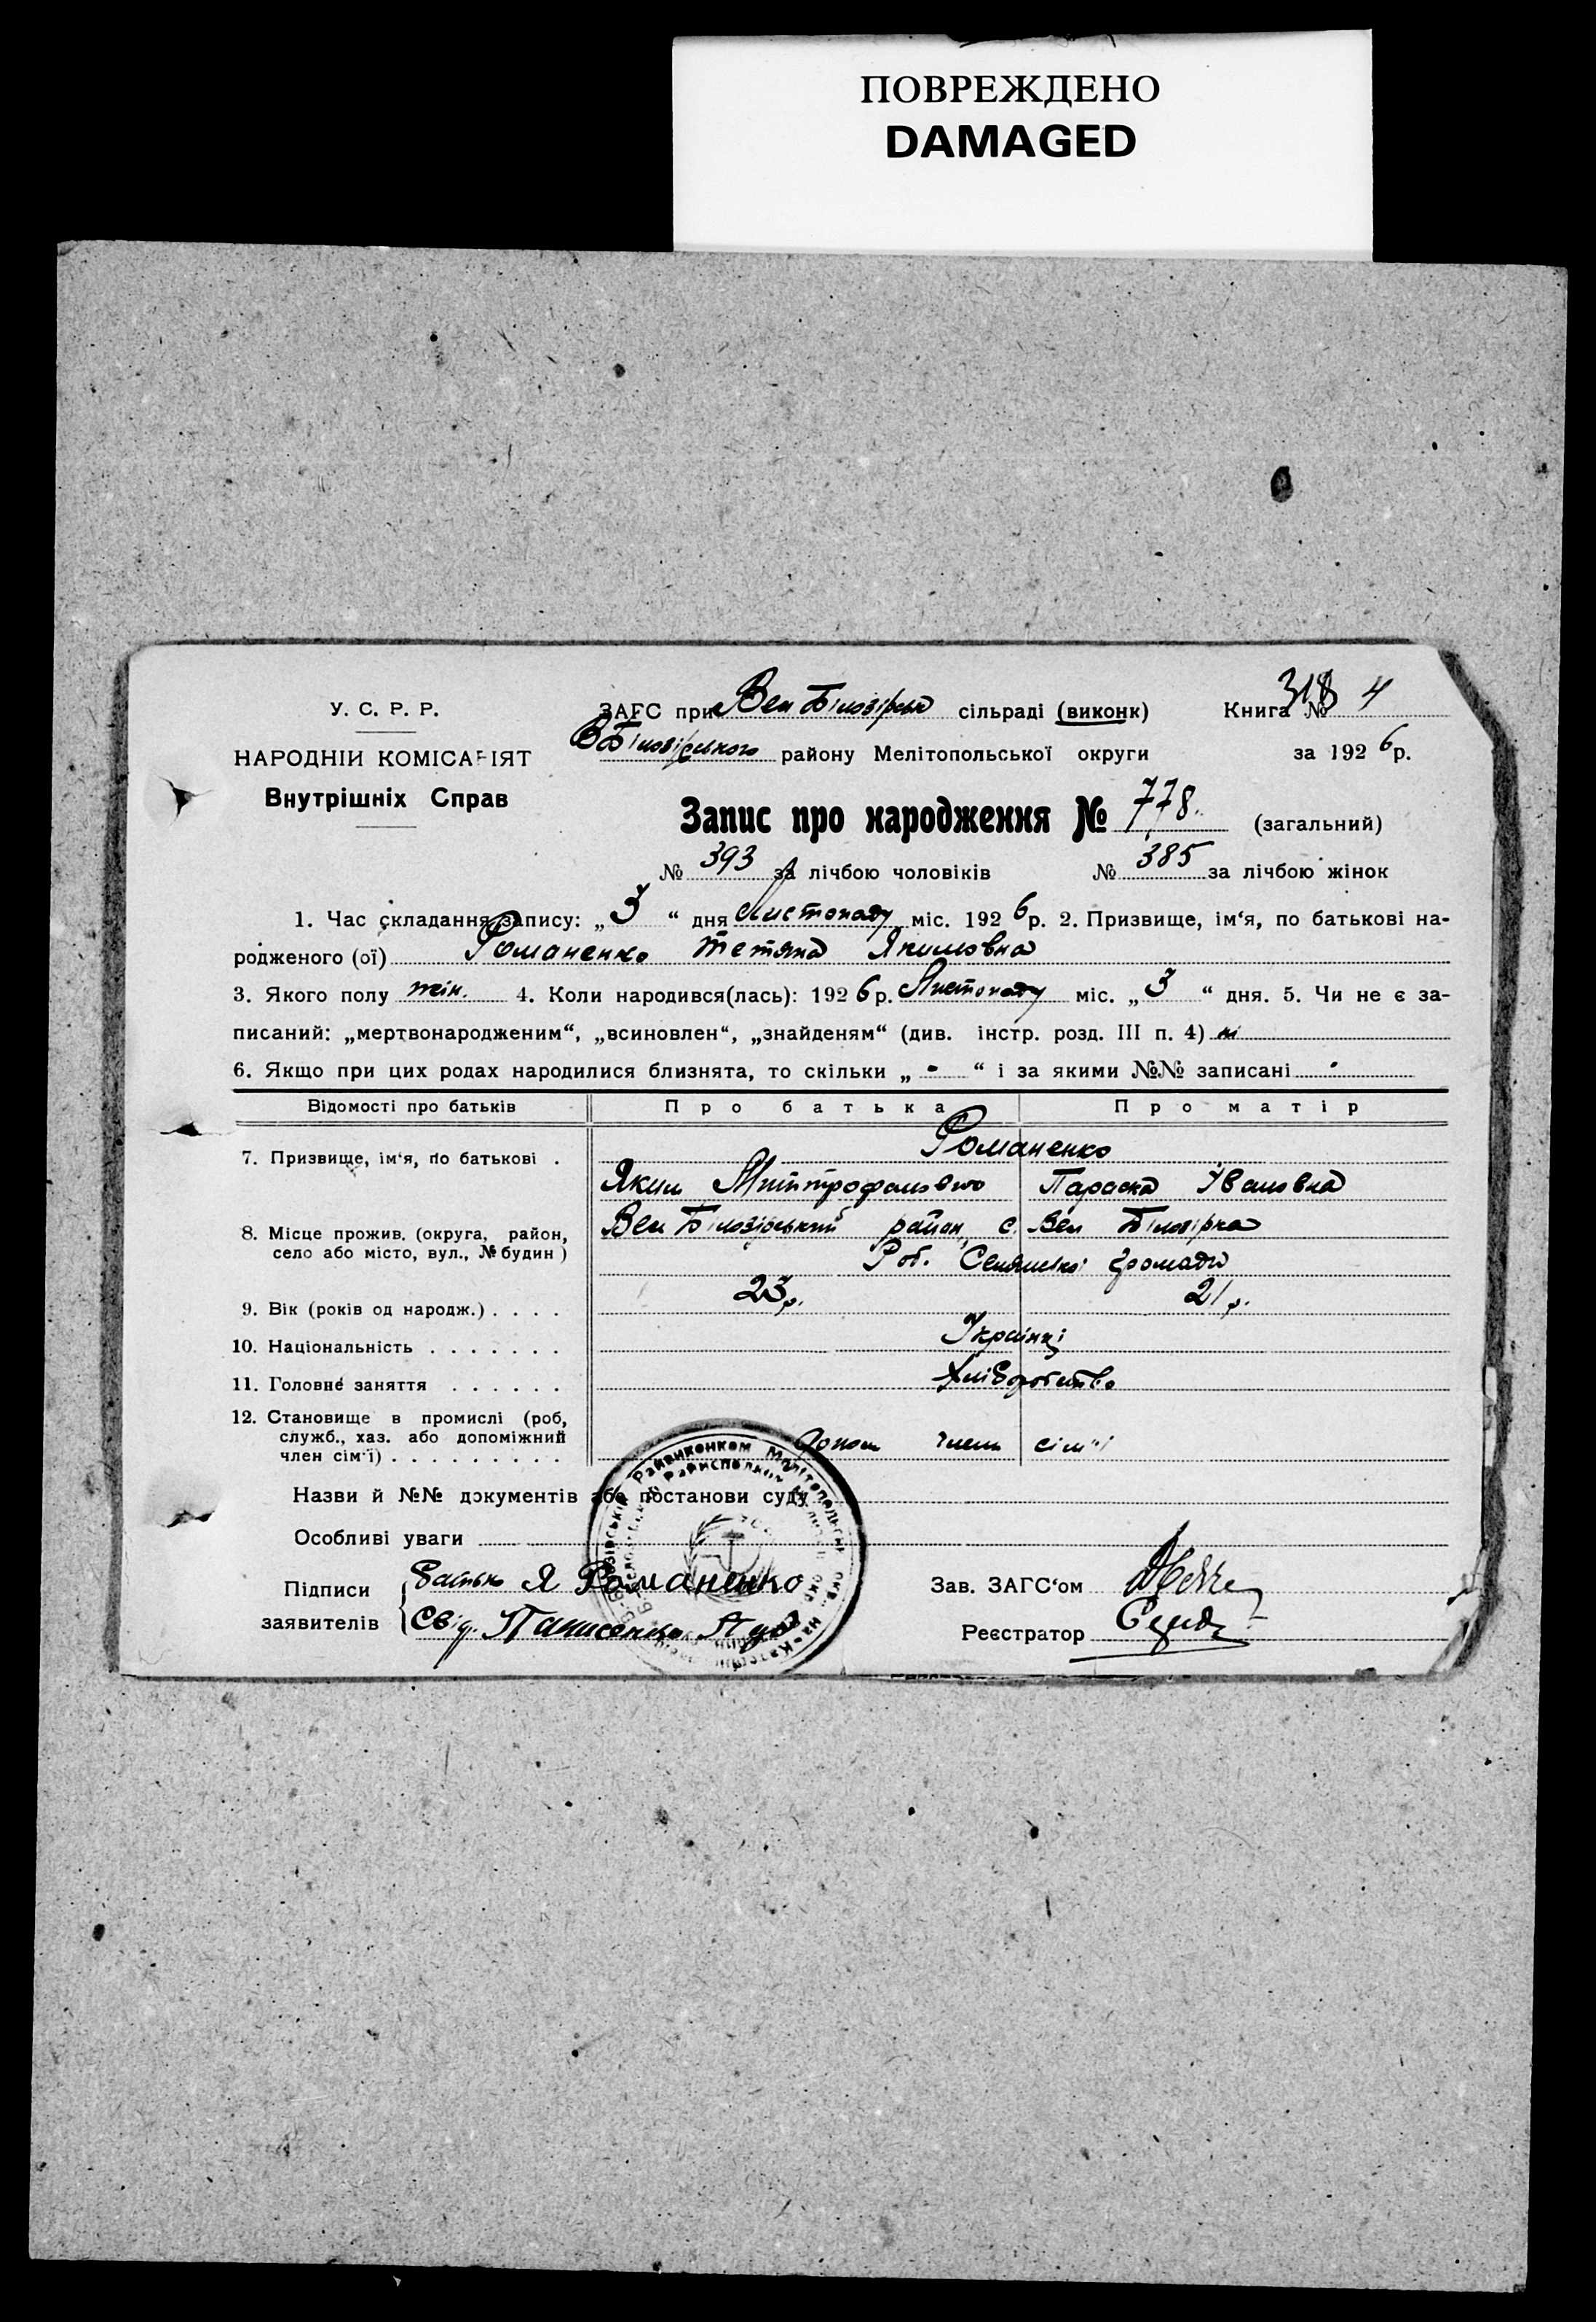 ПОВРЕЖДЕНО
DAMAGED
У. С. Р. Р.
НАРОДНІЙ КОМІСАРІЯТ
Внутрішніх Справ
ЗАГС при Вел Білозірськ сільраді (виконк)
Книга № 318 4
В Білозірського району Мелітопольської округи
за 1926 р.
Запис про народження № 778. (загальний)
№ 393 за лічбою чоловіків № 385 за лічбою жінок
1. Час складання запису: „3“ дня Листопаду міс. 1926 р. 2. Призвище, ім‘я, по батькові на-
родженого (ої) Романенко Тетяна Якимовна
3. Якого полу жін. 4. Коли народився(лась): 1926 р. Листопаду міс. „3“ дня. 5. Чи не є за-
писаний: „мертвонародженим“, „всиновлен“, „знайденям“ (див. інстр. розд. III п. 4) ні
6. Якщо при цих родах народилися близнята, то скільки „-“ і за якими №№ записані -
Відомості про батьків Про батька Про матір
7. Призвище, ім‘я, по батькові . Романенко
Яким Митрофанович Параска Івановна
8. Місце прожив. (округа, район, Вел Білозірський район, с. Вел Білозірка
село або місто, вул., № будин) Роб. Селянської громади
9. Вік (років од народж.) . . . . 23 р. 21 р.
10. Національність . . . . . . . Українці
11. Головне заняття . . . . . . Хліборобство
12. Становище в промислі (роб,
служб., хаз. або допоміжний
член сім‘ї) . . . . . . . . . Допом член сім'ї
Назви й №№ документів або постанови суду
Особливі уваги
Підписи
заявителів
Батько Я Романенко
Свід.
Зав. ЗАГС‘ом
Реєстратор
Райвиконком Мелітопольськ. окр. на Катеринослав